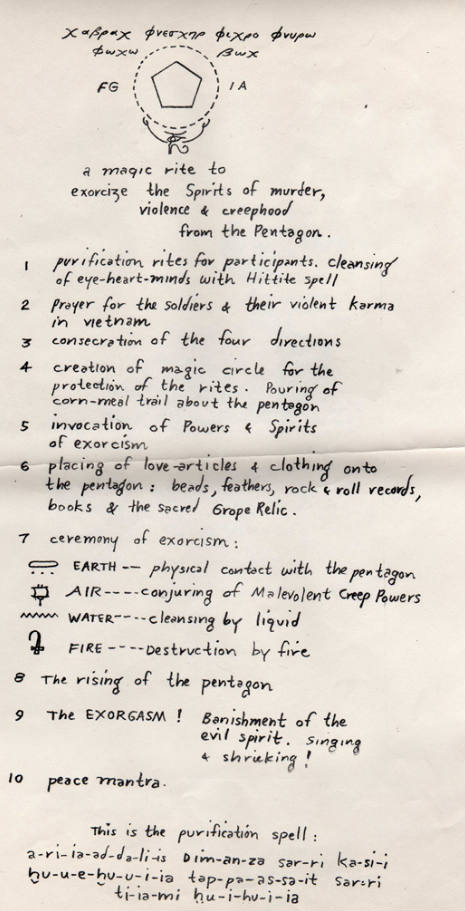 χαβραχ φνεσχηρ φιχρο φνυρω
φωχω βωχ
FG IA
a magic rite to
exorcize the Spirits of murder,
violence & creephood
from the Pentagon.
1 purification rites for participants. cleansing
of eye-heart-minds with Hittite spell
2 Prayer for the soldiers & their violent karma
in vietnam
3 consecration of the four directions
4 creation of magic circle for the
protection of the rites. Pouring of
corn-meal trail about the pentagon
5 invocation of Powers & Spirits
of exorcism
6 placing of love-articles & clothing onto
the pentagon: beads, feathers, rock & roll records,
books & the sacred Grope Relic.
7 ceremony of exorcism:
EARTH -- physical contact with the pentagon
AIR ---- conjuring of Malevolent Creep Powers
WATER---- cleansing by liquid
FIRE ---- Destruction by fire
8 The rising of the pentagon
9 The EXORGASM! Banishment of the
evil spirit. Singing
& shrieking!
10 peace mantra.
This is the purification spell:
a-ri-ia-ad-da-li-is Dim-an-za sar-ri ka-si-i
ḫu-u-e-ḫu-u-i-ia tap-pa-as-sa-it sar-ri
ti-ia-mi ḫu-i-ḫu-i-ia